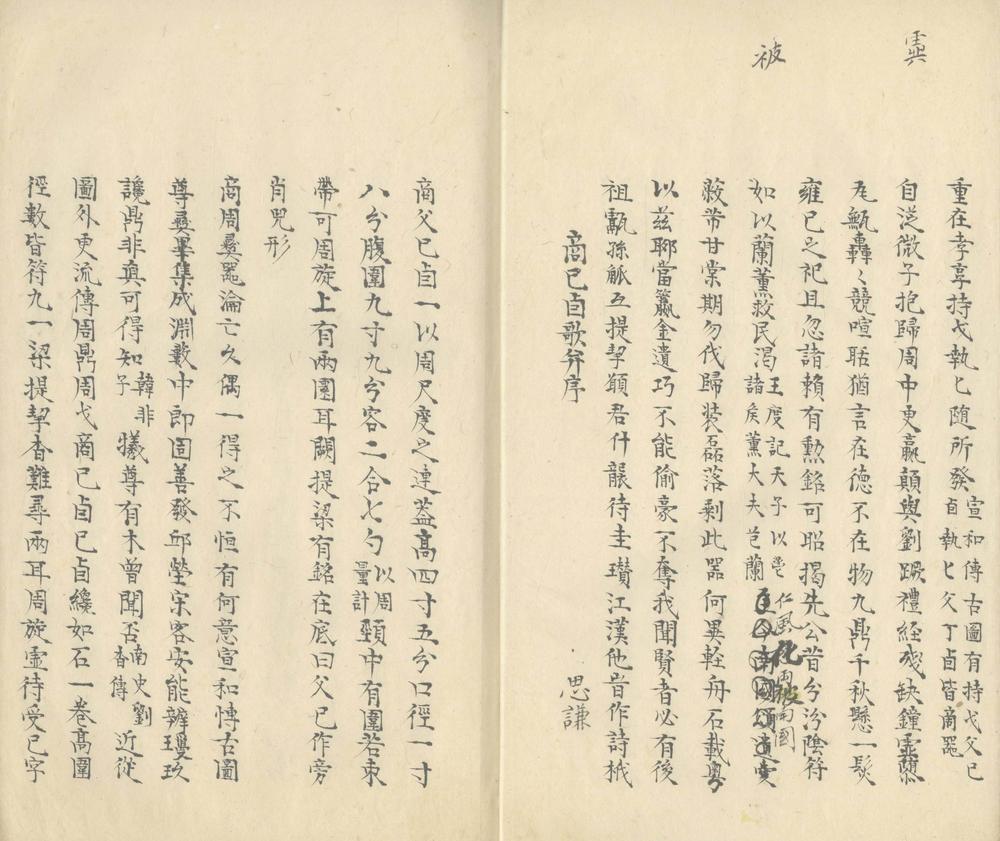 虡
被
重在孝享持戈執匕随所發宣和傳古圖有持戈父已
卣執匕父丁卣皆商器
微子抱歸周中更嬴顛與劉蹶禮經殘缺鐘虡隳
瓦甒轟〻競喧聒猶言在德不在物九鼎千秋懸一髮
雍已之祀且忽諸賴有勲銘可昭揭先公昔兮汾陰符
如以蘭薰救民渴王度記天子以鬯
諸矦薰大夫芑蘭
仁風化雨被南國
自今南國頌遺愛
蔽芾甘棠期勿伐歸裝磊落剩此器何異輕舟石載粵
以兹聊當籯金遺巧不能偷豪不奪我聞賢者必有後
祖甗孫鬲互提挈願君什襲待圭瓚江漢他昔作詩
思謙
商已卣歌并序
商父已卣一以周尺度之連蓋高四寸五分口徑一寸
八分腹圍九寸九分容二合七勺以周
量計頸中有圍若朿
帶可周旋上有兩圜耳闕提梁有銘在底曰父已作旁
肖兕形
商周彝器淪亡久偶一得之不恒有何意宣和博古圖
尊彝畢集成淵藪中郎固善發邱塋宋客安能辨璞玖
讒鼎非真可得知韓非
子犧尊有木曾聞否南史劉
杳傳近從
圖外更流傳周鼎周戈商已卣已卣纔如石一卷高圍
徑數皆符九一梁提挈杳難尋兩耳周旋虛待受已字